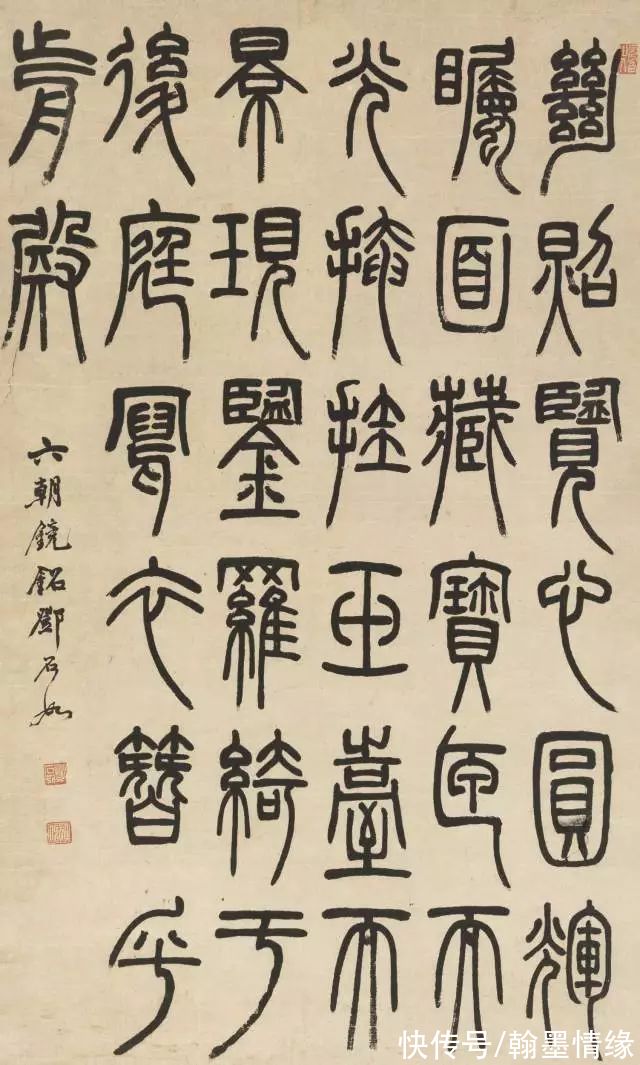 絕照覽心圓輝
矚面藏寶匣而
光掩挂玉臺而
景現鑒羅綺于
後庭寫衣簪乎
前殿
六朝鏡銘鄧石如
快传号/翰墨情缘